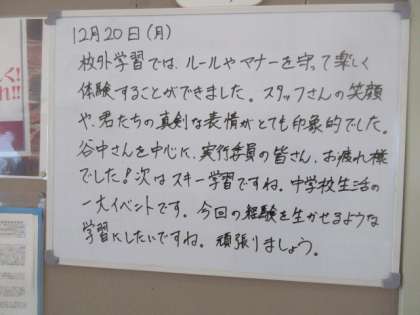 12月20日(月)
校外学習では、ルールやマナーを守って楽しく
体験することができました。スタッフさんの笑顔
や、君たちの真剣な表情がとても印象的でした。
谷中さんを中心に、実行委員の皆さん、お疲れ様
でした！次はスキー学習ですね。中学校生活の
一大イベントです。今回の経験を生かせるような
学習にしたいですね。頑張りましょう。